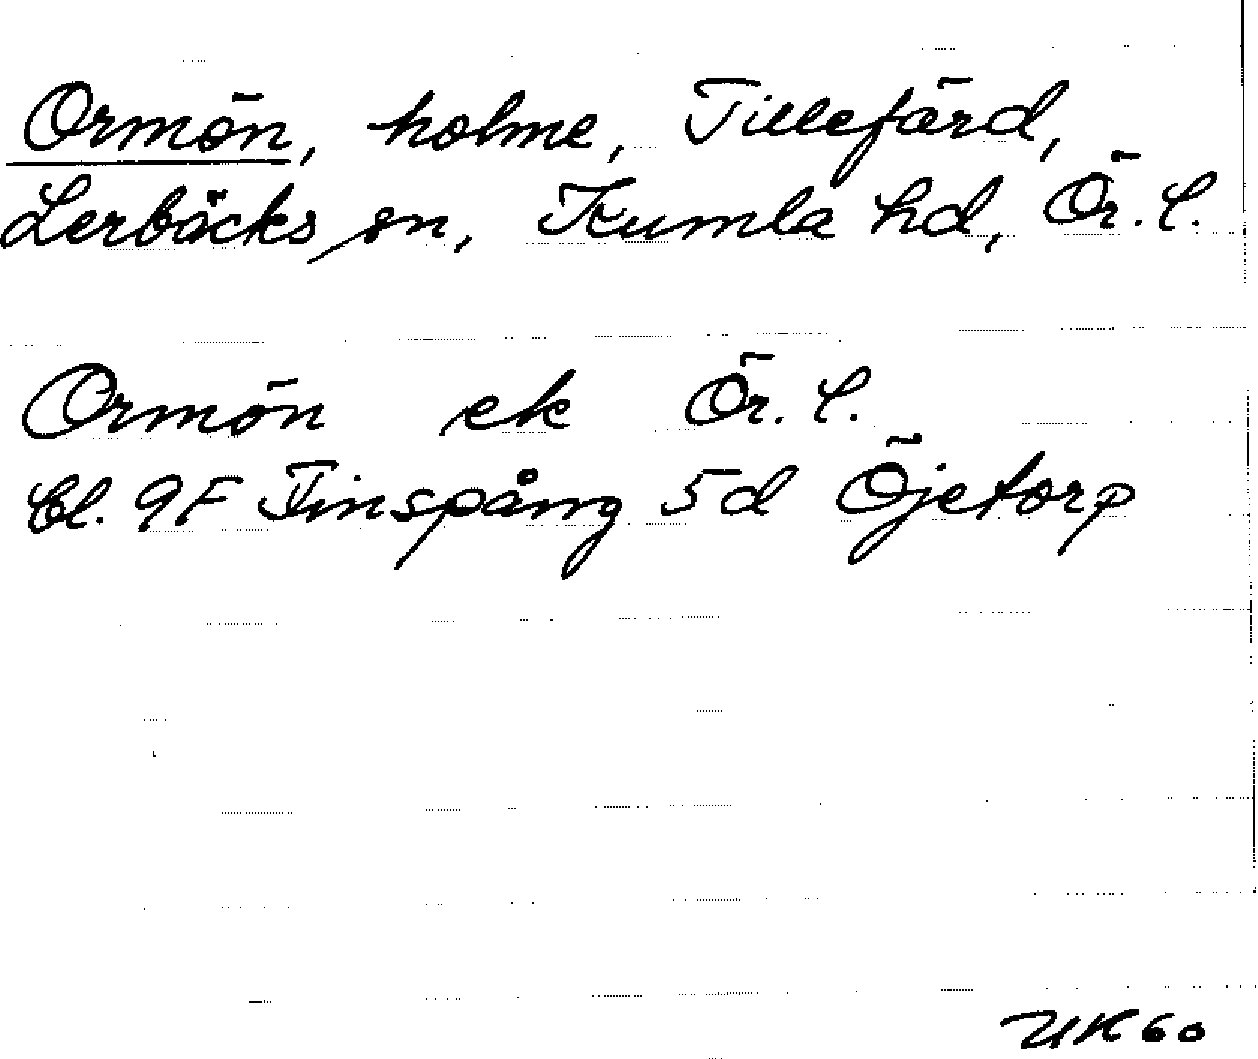 Ormön, holme, Tillefärd,
Lerbäcks sn, Kumla hd, Ör. l.
Ormön ek Ör. l.
bl. 9F Finspång 5d Öjetorp
UK 60